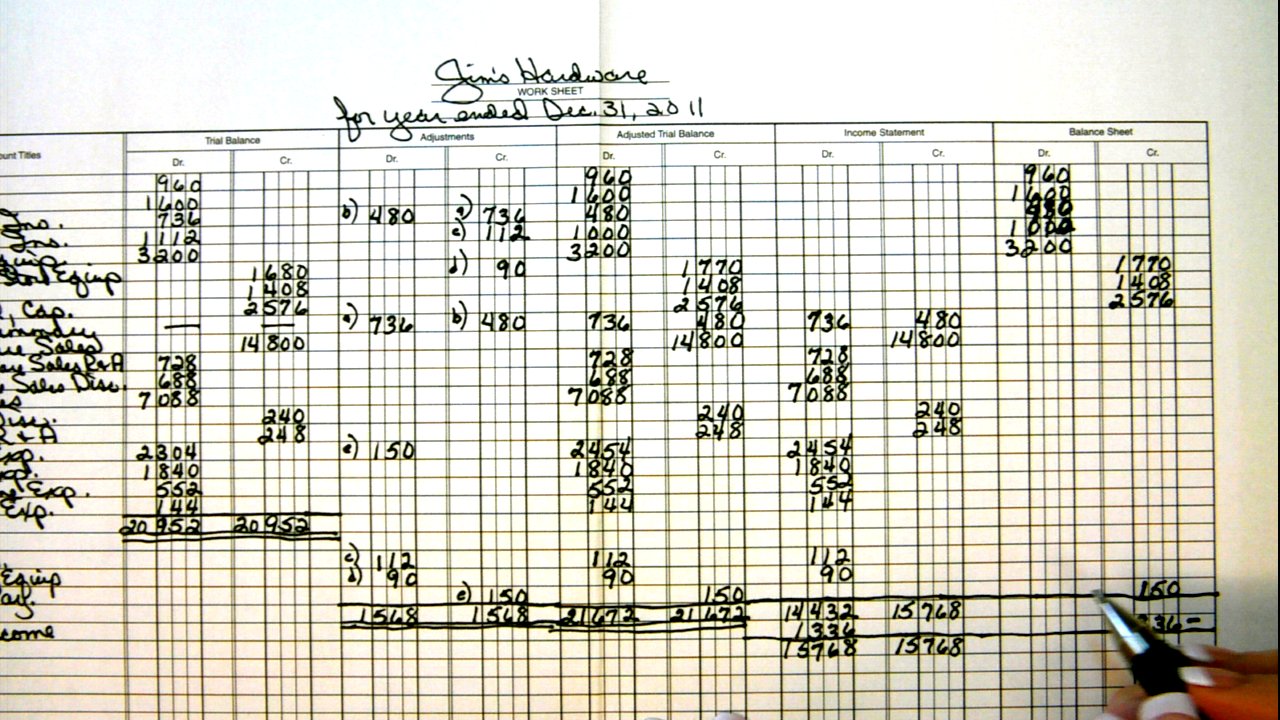 Jim's Hardware
WORK SHEET
for year ended Dec. 31, 2011
unt Titles Trial Balance Adjustments Adjusted Trial Balance Income Statement Balance Sheet
Dr. Cr. Dr. Cr. Dr. Cr. Dr. Cr. Dr. Cr.
960 960 960
1600 1600 1600
Ins. 736 b) 480 a) 736 480 480
Ins. 1112 c) 112 1000 1000
quip. 3200 3200 3200
Store Equip 1680 d) 90 1770 1770
1408 1408 1408
, Cap. 2576 2576 2576
ummary — — a) 736 b) 480 736 480 736 480
Sales 14800 14800 14800
Sales R+A 728 728 728
Sales Disc. 688 688 688
es 7088 7088 7088
Disc. 240 240 240
R + A 248 248 248
Exp. 2304 e) 150 2454 2454
Exp. 1840 1840 1840
Exp. 552 552 552
Exp. 144 144 144
20952 20952
c) 112 112 112
Equip d) 90 90 90
ay. e) 150 150 150
1568 1568 21672 21672 14432 15768
come 1336 336-
15768 15768